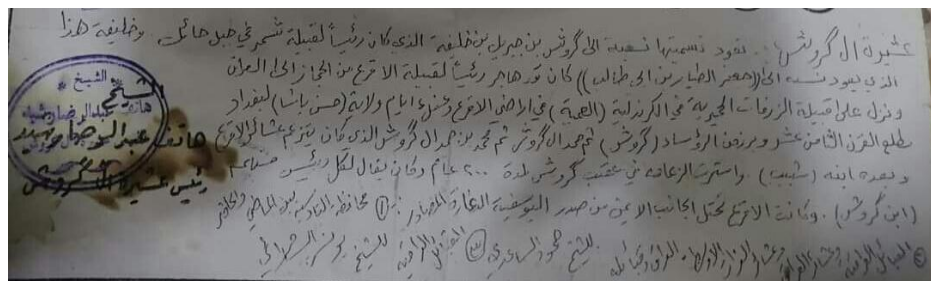 عشيرة ال گروش . تعود تسميتها نسبة الى گروش بن جبريل بن خليفة الذي كان رئيساً لقبيلة شمر في جبل حائل . وخليفة هذا
الذي يعود نسبه الى ((جعفر الطيار بن ابي طالب)) كان قد هاجر رئيساً لقبيلة الاقرع من الحجاز الى العراق
ونزل على قبيلة في في اراضي الاقرع ايام ولاية (حسن باشا) لبغداد
مطلع القرن الثامن عشر وبرز من الرؤساء (گروش) ثم حمد ال گروش ثم محمد بن حمد ال گروش الذي كان يتزعم عشائر الاقرع
وبعده ابنه (شبيب) . واستمرت الزعامة في عقب گروش لمدة ٢٠٠ عام وكان يقال لكل رئيس منهم
(ابن گروش) . وكانت الاقرع تحتل الجانب الايمن من صدر اليوسفية المصادر ١ محافظة القادسية بين الماضي والحاضر
القبائل العراقية وعشائر الفرات الاوسط للشيخ حمود الساعدي ٣ القبائل العراقية للشيخ يونس
الشيخ
هاتف عبد الرضا
رئيس عشيرة ال گروش